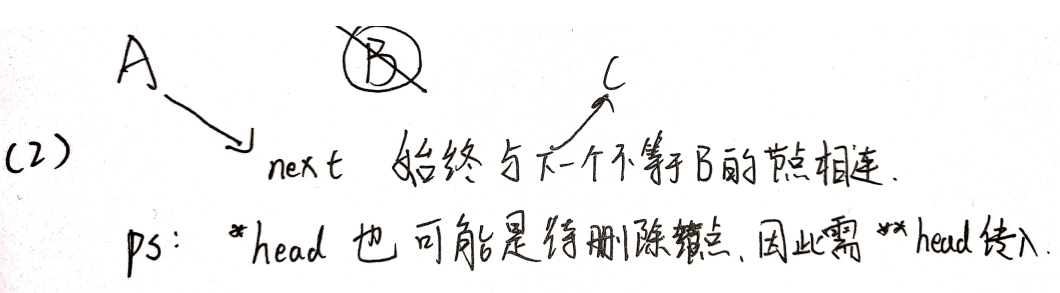 A B C
(2) next 始终与下一个不等于B的节点相连.
ps: *head 也可能是待删除节点、因此需 **head 传入.